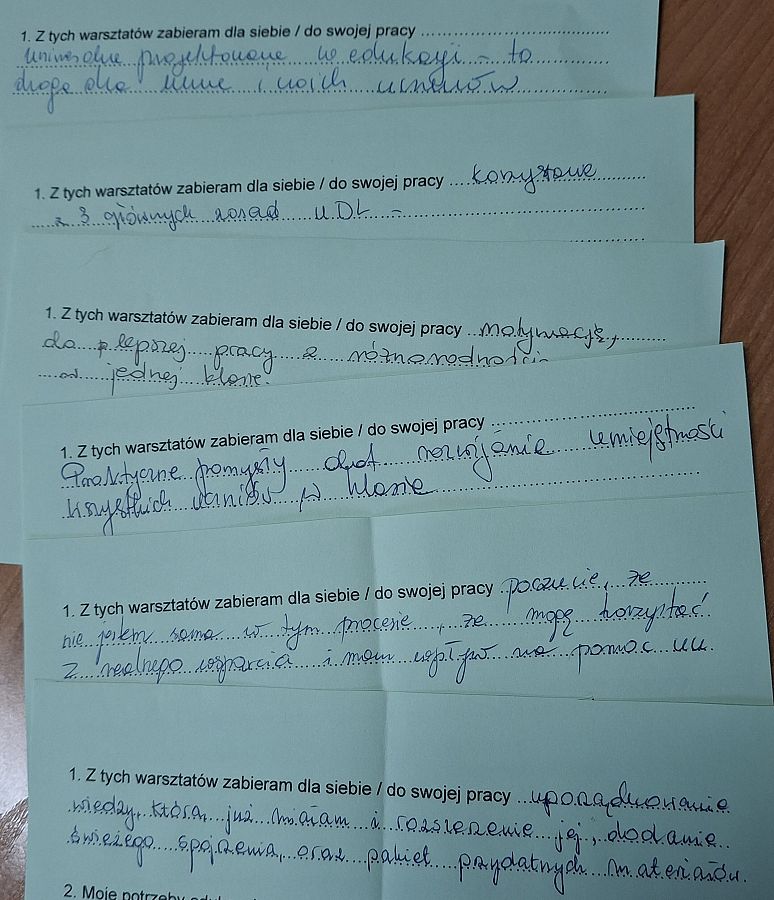 1. Z tych warsztatów zabieram dla siebie / do swojej pracy
uniwersalne projektowanie w edukacji – to
droga dla mnie i moich uczniów
1. Z tych warsztatów zabieram dla siebie / do swojej pracy korzystanie
z 3 głównych zasad UDL –
1. Z tych warsztatów zabieram dla siebie / do swojej pracy motywację,
do lepszej pracy z różnorodności
jednej klasie.
1. Z tych warsztatów zabieram dla siebie / do swojej pracy
Praktyczne pomysły dot. rozwijanie umiejętności
wszystkich uczniów w klasie
1. Z tych warsztatów zabieram dla siebie / do swojej pracy poczucie, że
nie jestem sama w tym procesie, że mogę korzystać
z realnego wsparcia i mam wpływ na pomoc uu.
1. Z tych warsztatów zabieram dla siebie / do swojej pracy uporządkowanie
wiedzy, którą już miałam i rozszerzenie jej, dodanie
świeżego spojrzenia, oraz pakiet przydatnych materiałów.
2. Moje potrzeby